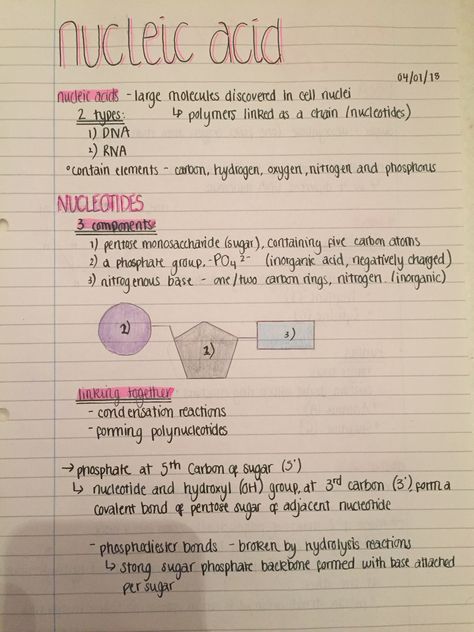 nucleic acid
04/01/18
nucleic acids - large molecules discovered in cell nuclei
2 types: ↳ polymers linked as a chain (nucleotides)
1) DNA
2) RNA
°contain elements - carbon, hydrogen, oxygen, nitrogen and phosphorus
NUCLEOTIDES
3 components
1) pentose monosaccharide (sugar), containing five carbon atoms
2) a phosphate group, -PO4 2- (inorganic acid, negatively charged)
3) nitrogenous base - one/two carbon rings, nitrogen. (inorganic)
2) 1) 3)
linking together
- condensation reactions
- forming polynucleotides
→ phosphate at 5th Carbon of sugar (5')
↳ nucleotide and hydroxyl (OH) group, at 3rd carbon (3') form a
covalent bond of pentose sugar of adjacent nucleotide
- phosphodiester bonds - broken by hydrolysis reactions
↳ stong sugar phosphate backbone formed with base attached
per sugar